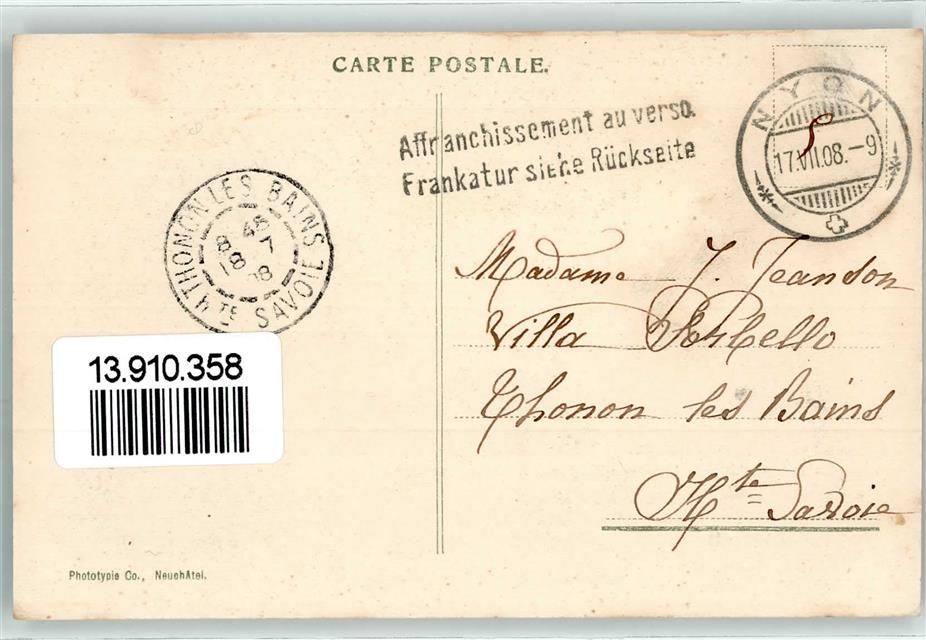 CARTE POSTALE.
Affranchissement au verso.
Frankatur siehe Rückseite
NYON
17.VII.08.-9
THONON LES BAINS
8 45
18 7
08
HTE SAVOIE
Madame J. Jeandon
Villa
Thonon les Bains
Hte Savoie
13.910.358
Phototypie Co., Neuchâtel.